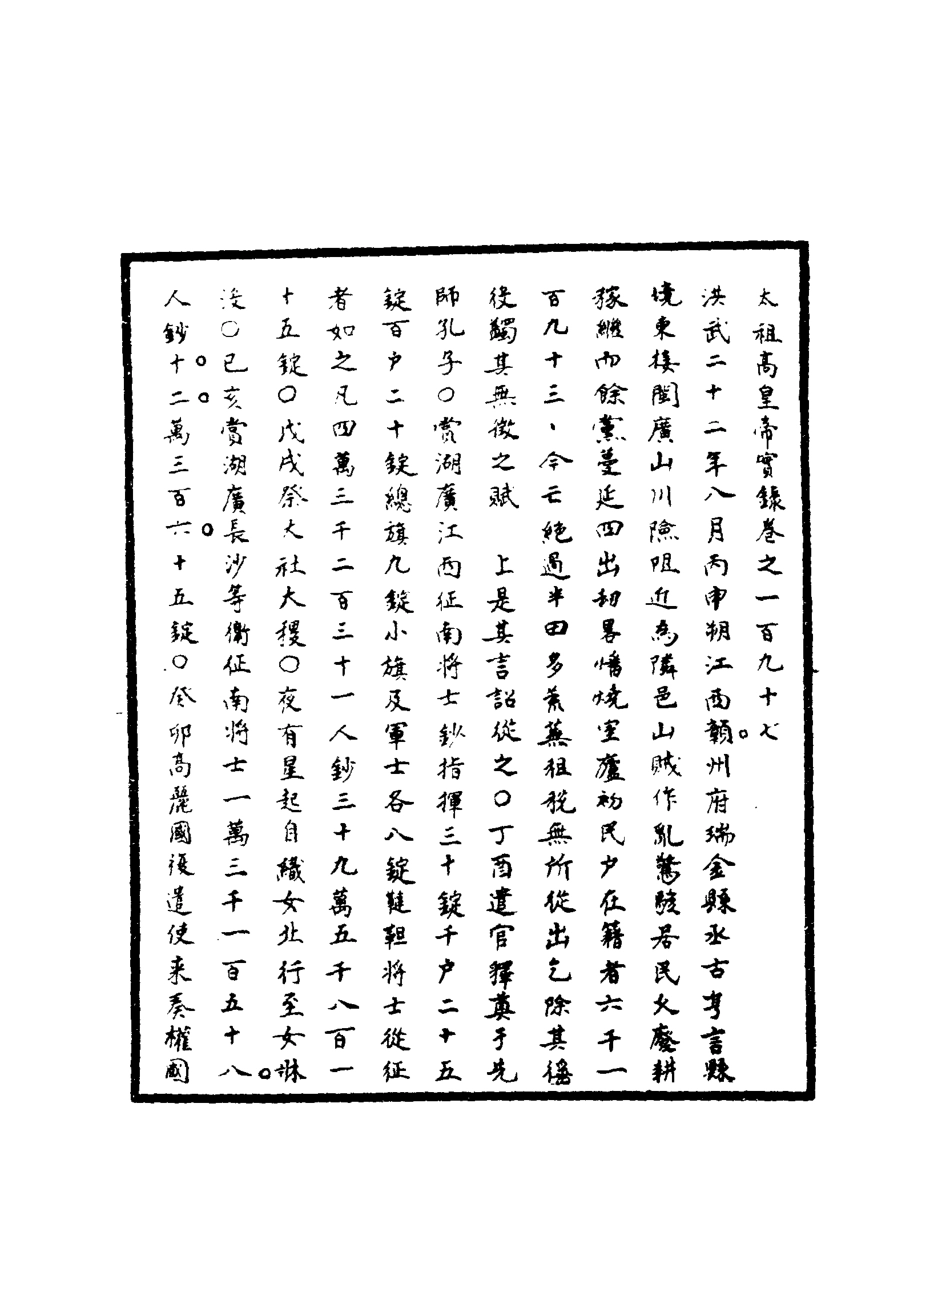 太祖高皇帝實錄卷之一百九十七
洪武二十二年八月丙申朔江西贑州府瑞金縣丞古亨言縣
境東接閩廣山川險阻近為隣邑山賊作亂驚駭居民久廢耕
稼繼而餘黨蔓延四出刼畧燔燒室廬初民户在籍者六千一
百九十三丶今亡絕過半田多荒蕪租稅無所從出乞除其徭
役蠲其無徵之賦　上是其言詔從之○丁酉遣官釋奠于先
師孔子○賞湖廣江西征南將士鈔指揮三十錠千户二十五
錠百户二十錠總旗九錠小旗及軍士各八錠韃靼將士從征
者如之凡四萬三千二百三十一人鈔三十九萬五千八百一
十五錠○戊戌祭大社大稷○夜有星起自織女北行至女牀
没○已亥賞湖廣長沙等衛征南將士一萬三千一百五十八
人鈔十二萬三百六十五錠○癸卯高麗國復遣使来奏權國